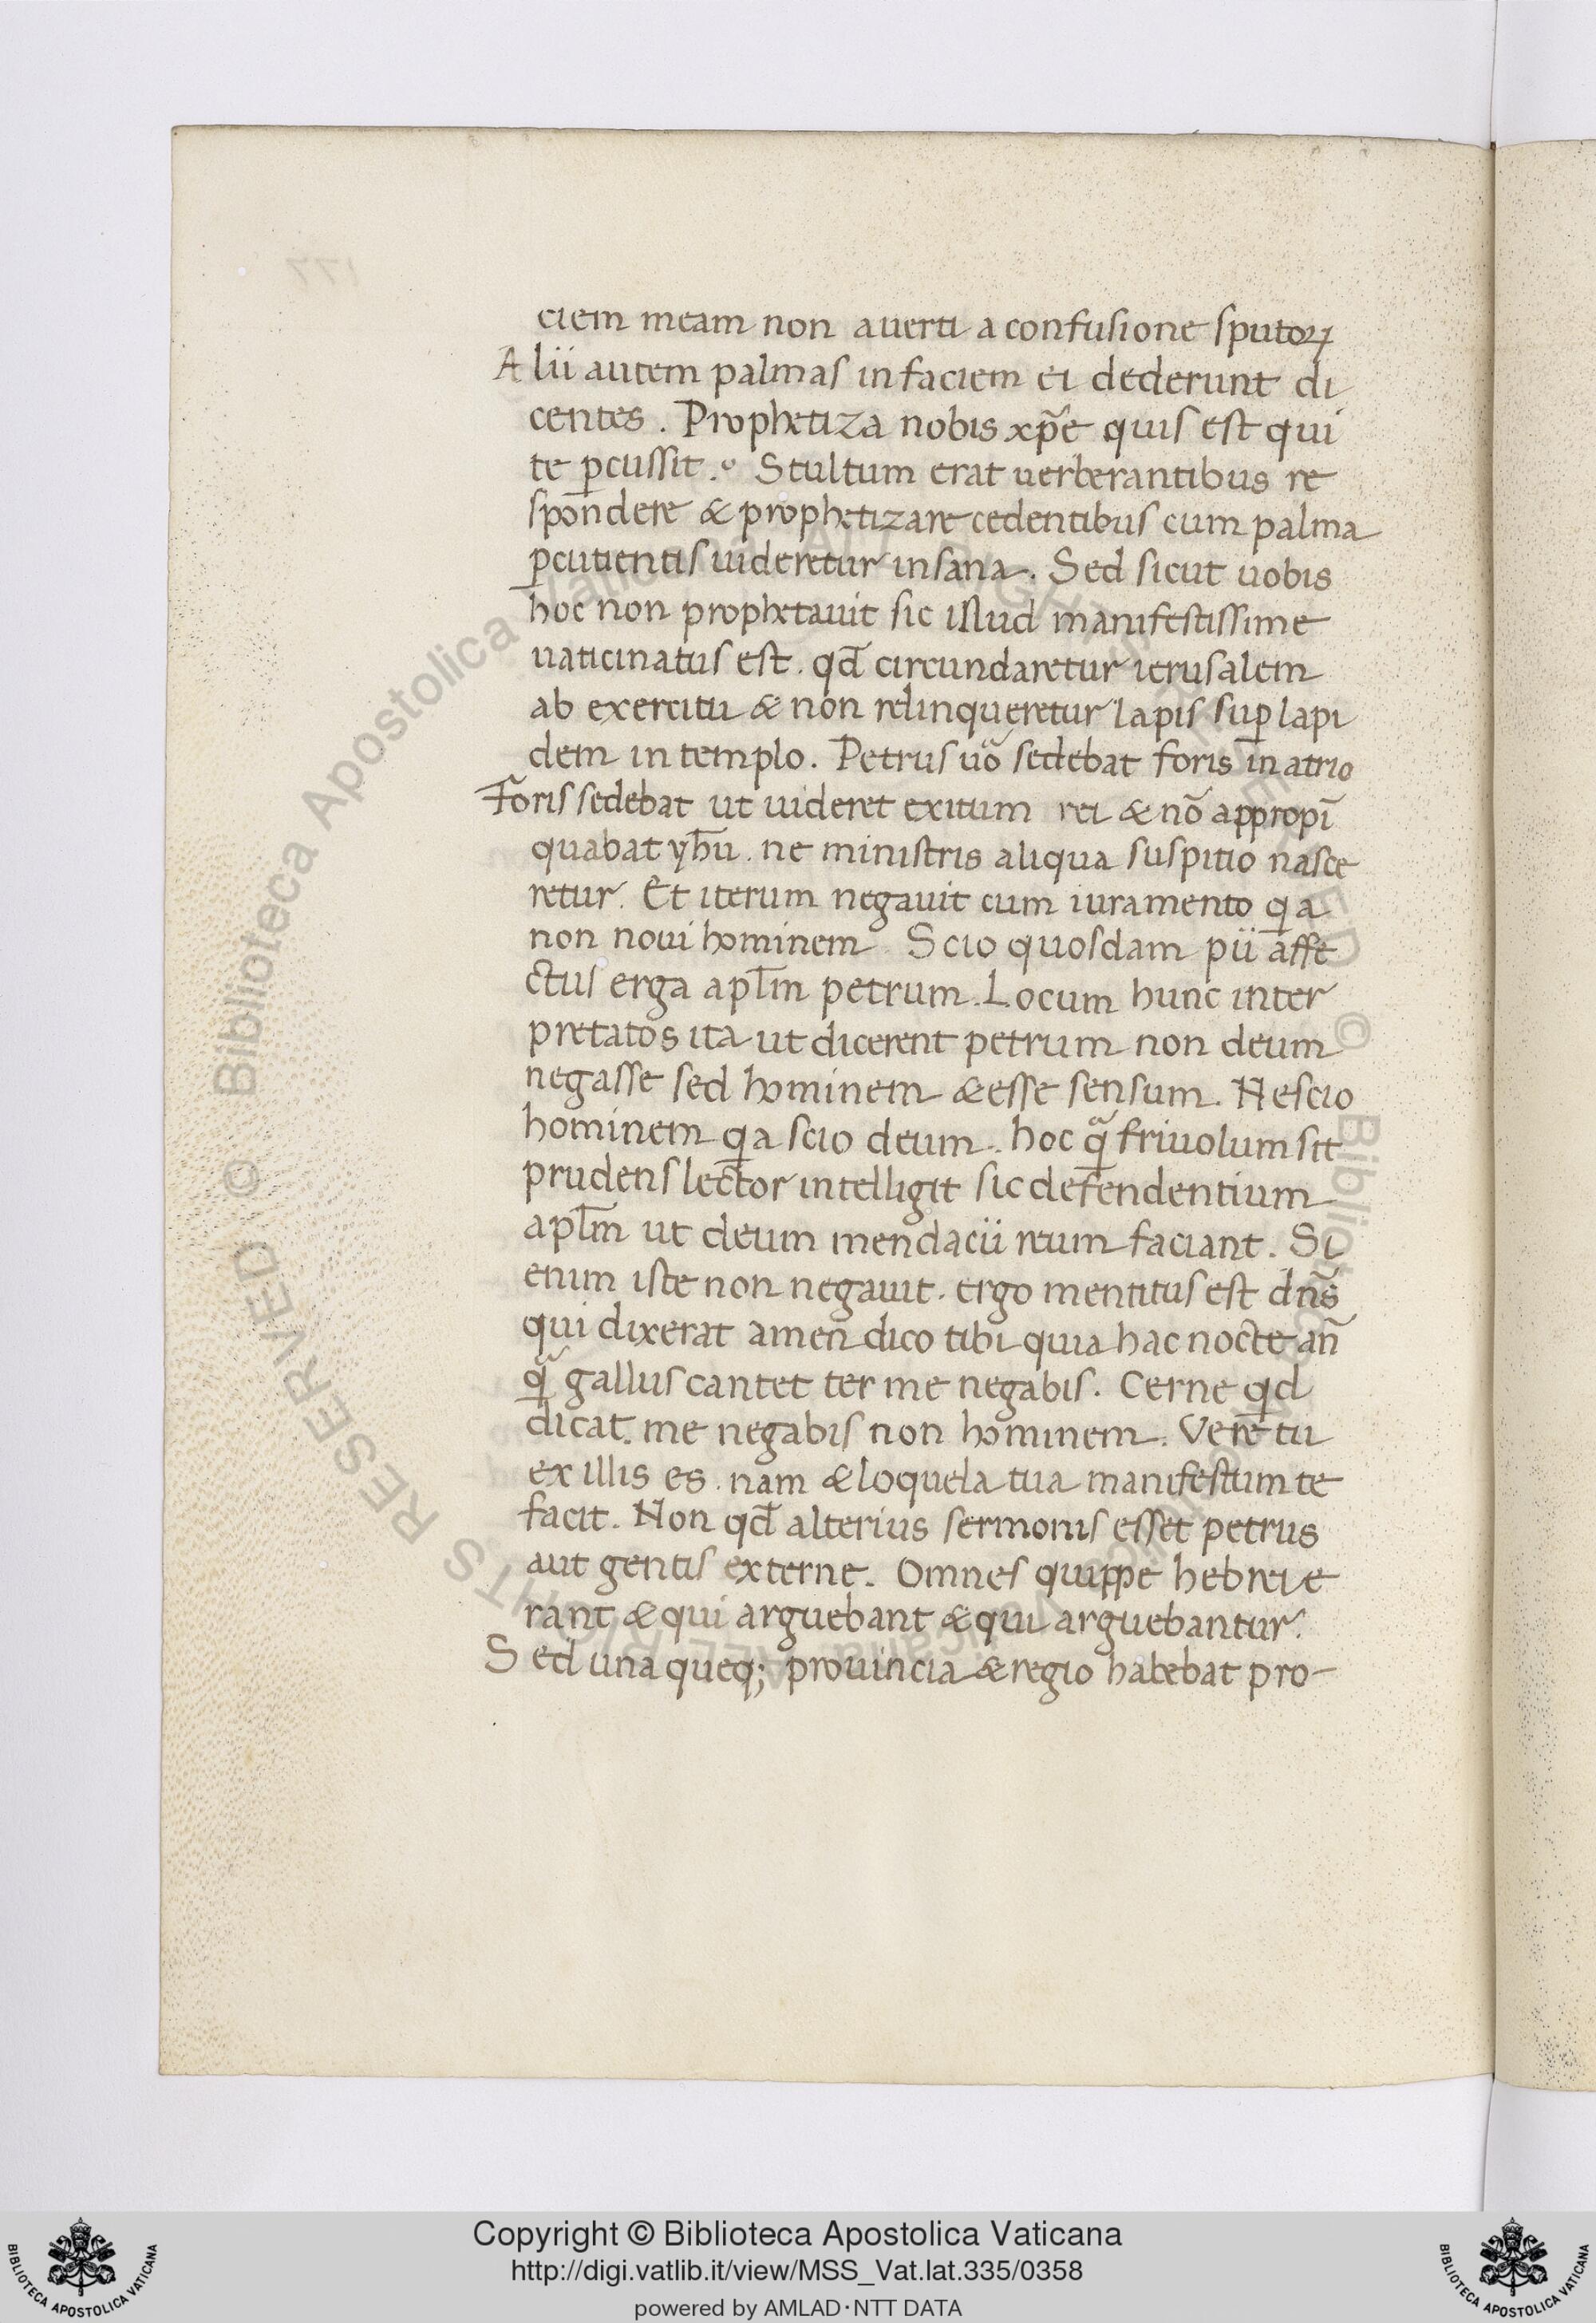 ciem meam non auerti a confusione sputoꝝ
Alii autem palmas in faciem ei dederunt di
centes. Prophetiza nobis xp̄e quis est qui
te ꝑcussit. Stultum erat uerberantibus re
spondere & prophetizare cedentibus cum palma
ꝑcutientis uideretur insana. Sed sicut uobis
hoc non prophetauit sic illud manifestissime
uaticinatus est. qd̄ circundaretur ierusalem
ab exercitu & non relinqueretur lapis suꝑ lapi
dem in templo. Petrus uō sedebat foris in atrio
Foris sedebat ut uideret exitum rei & nō appropī
quabat yhū. ne ministris aliqua suspitio nasce
retur. Et iterum negauit cum iuramento qa
non noui hominem. Scio quosdam pii affe
ctus erga apl̄m petrum. Locum hunc inter
pretatos ita ut dicerent petrum non deum
negasse sed hominem & esse sensum. Nescio
hominem qa scio deum. hoc qᷓ friuolum sit
prudens lector intelligit sic defendentium
apl̄m ut deum mendacii reum faciant. Si
enim iste non negauit. ergo mentitus est dn̄s
qui dixerat amen dico tibi quia hac nocte an̄
qᷓ gallus cantet ter me negabis. Cerne qd
dicat. me negabis non hominem. Vere tu
ex illis es. nam & loquela tua manifestum te
facit. Non qd̄ alterius sermonis esset petrus
aut gentis externe. Omnes quippe hebrei e
rant & qui arguebant & qui arguebantur.
Sed una queq; prouincia & regio habebat pro-
© Biblioteca Apostolica Vaticana ALL RIGHTS RESERVED © Biblioteca Apostolica Vaticana ALL RIGHTS RESERVED
Copyright © Biblioteca Apostolica Vaticana
http://digi.vatlib.it/view/MSS_Vat.lat.335/0358
powered by AMLAD·NTT DATA
BIBLIOTECA APOSTOLICA VATICANA
BIBLIOTECA APOSTOLICA VATICANA